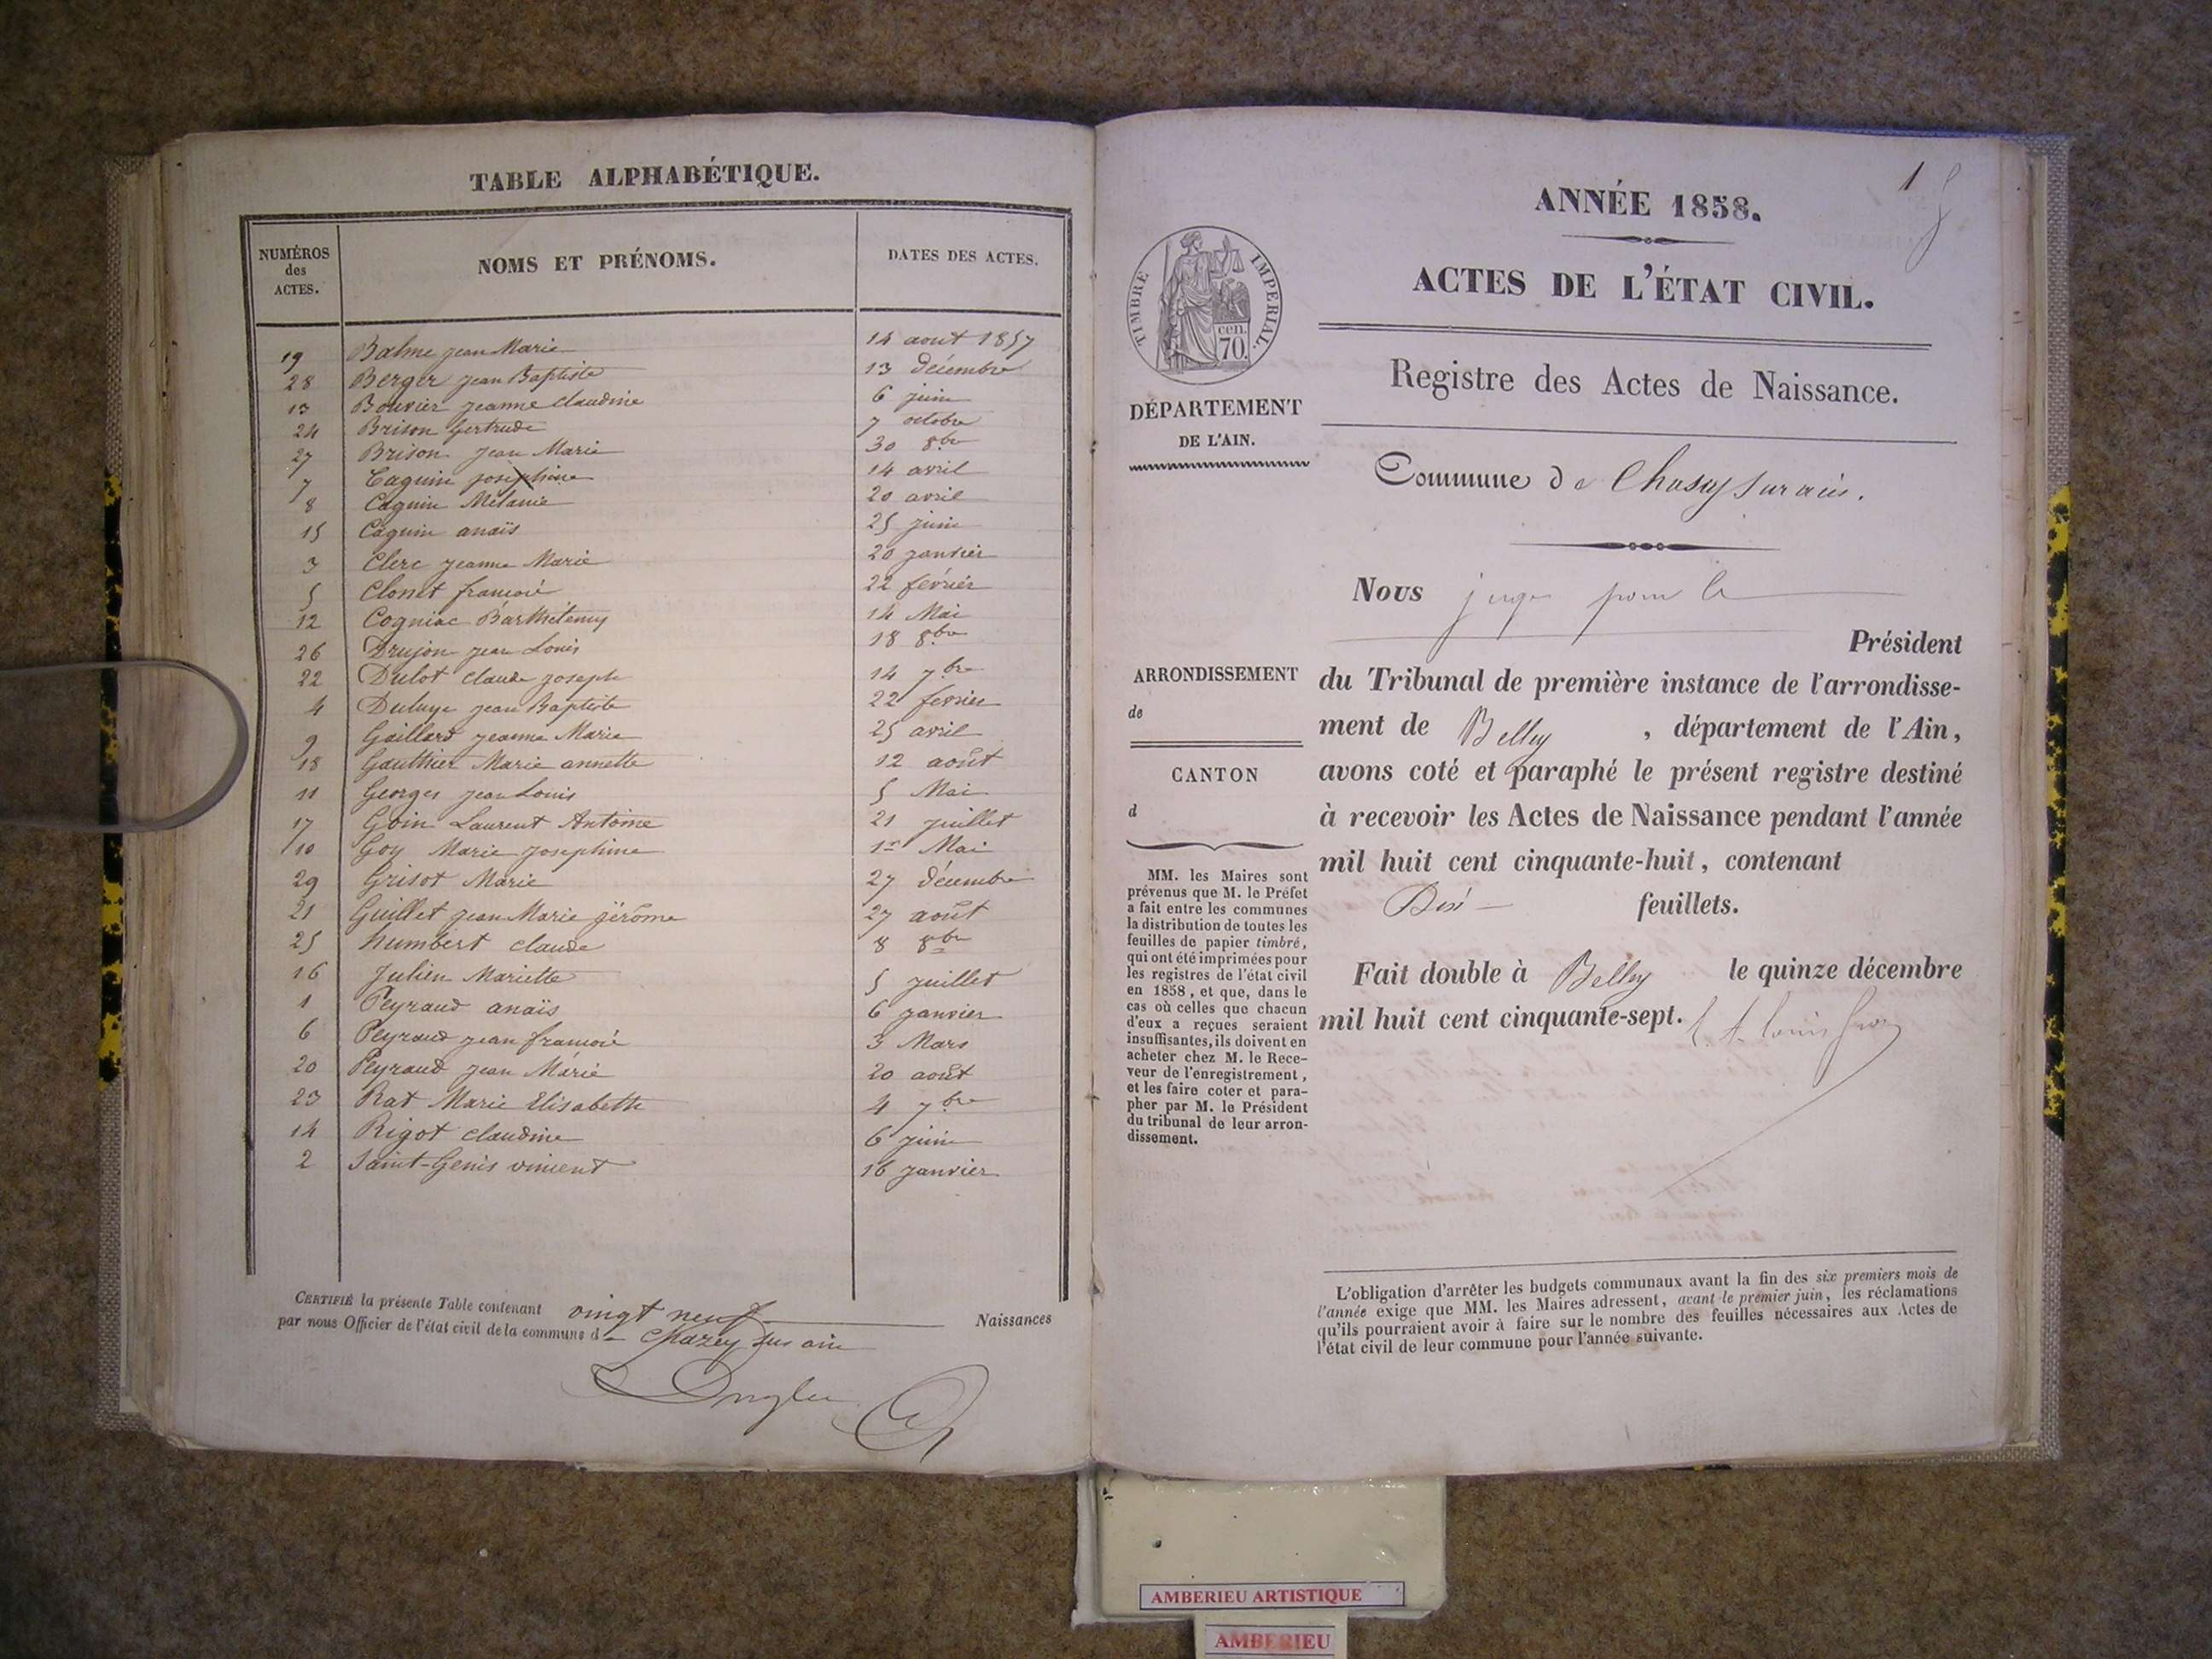 TABLE ALPHABÉTIQUE.
NUMÉROS des ACTES. NOMS ET PRÉNOMS. DATES DES ACTES.
19 Balme jean Marie 14 aout 1857
28 Berger jean Baptiste 13 décembre
13 Bouvier jeanne claudine 6 juin
24 Brison Gertrude 7 octobre
27 Brison Jean Marie 30 8bre
7 Caguin josephine 14 avril
8 Caguin Mélanie 20 avril
15 Caguin anaïs 25 juin
3 Clerc jeanne Marie 20 janvier
5 Clonet françois 22 février
12 Cogniac Barthélemy 14 Mai
26 Drujon jean Louis 18 8bre
22 Dulot claude joseph 14 7bre
4 jean Baptiste 22 fevrier
9 Gaillard jeanne Marie 25 avril
18 Gauthier Marie annette 12 août
11 Georges jean Louis 5 Mai
17 Goin Laurent Antoine 21 juillet
10 Goy Marie josephine 1er Mai
29 Grisot Marie 27 décembre
21 Guillet jean Marie jérôme 27 août
25 humbert claude 8 8bre
16 Julien Mariette 5 juillet
1 Peyraud anaïs 6 janvier
6 Peyraud jean françois 3 Mars
20 Peyraud jean Marie 20 août
23 Rat Marie Elisabeth 4 7bre
14 Rigot claudine 6 juin
2 Saint-Genis vincent 16 janvier
CERTIFIÉ la présente Table contenant vingt neuf Naissances
par nous Officier de l'état civil de la commune d Chazey sur ain
1
ANNÉE 1858.
ACTES DE L'ÉTAT CIVIL.
TIMBRE IMPERIAL.
cen.
70.
Registre des Actes de Naissance.
DÉPARTEMENT
DE L'AIN.
Commune de Chazey sur ain.
Nous juge pour le
Président
ARRONDISSEMENT
de
CANTON
d
du Tribunal de première instance de l'arrondisse-
ment de Belley , département de l'Ain,
avons coté et paraphé le présent registre destiné
à recevoir les Actes de Naissance pendant l'année
mil huit cent cinquante-huit, contenant
feuillets.
Fait double à Belley le quinze décembre
mil huit cent cinquante-sept.
MM. les Maires sont
prévenus que M. le Préfet
a fait entre les communes
la distribution de toutes les
feuilles de papier timbré,
qui ont été imprimées pour
les registres de l'état civil
en 1858, et que, dans le
cas où celles que chacun
d'eux a reçues seraient
insuffisantes, ils doivent en
acheter chez M. le Rece-
veur de l'enregistrement,
et les faire coter et para-
pher par M. le Président
du tribunal de leur arron-
dissement.
L'obligation d'arrêter les budgets communaux avant la fin des six premiers mois de
l'année exige que MM. les Maires adressent, avant le premier juin, les réclamations
qu'ils pourraient avoir à faire sur le nombre des feuilles nécessaires aux Actes de
l'état civil de leur commune pour l'année suivante.
AMBERIEU ARTISTIQUE
AMBERIEU